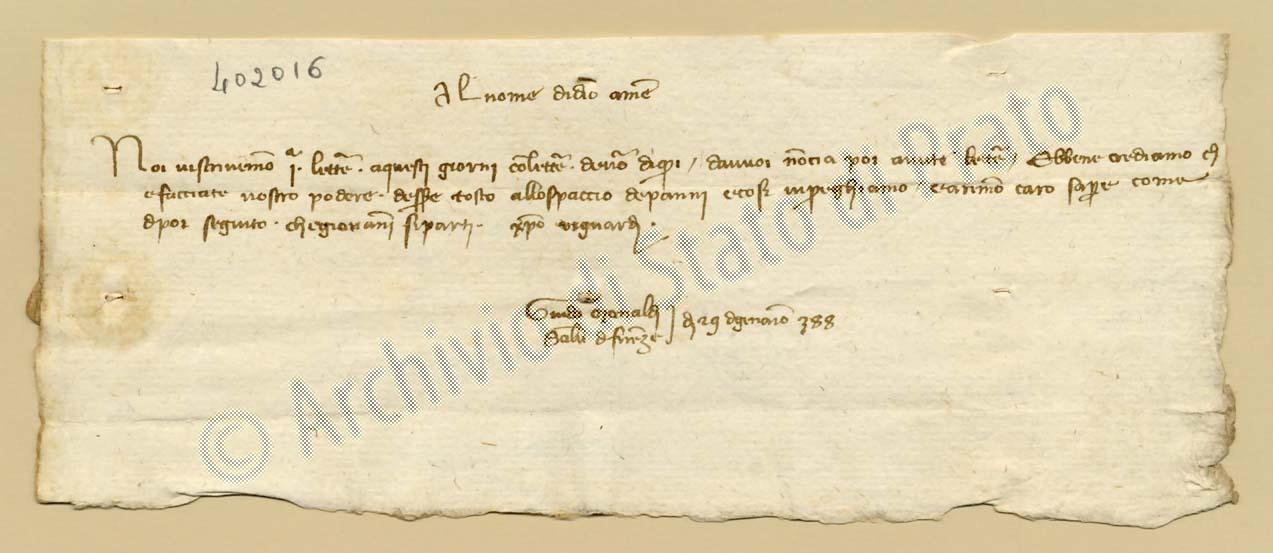 402016
Al nome di dio ame
Noi vi scrivemo .jª. lettẽ . a questi giorni co lettẽ . de vr̃o di qui / da voi nõ cia poi avute lettẽ / E bbene crediamo ch
e facciate vostro podere . desse tosto allo spaccio de panni e cosi vi preghiamo / e aremo caro sapẽ come
di poi seguito . che giovanni si parti . xp̃o vi guardi .
Guido e rinaldi
di firẽze
di 29 di gienaio 388
© Archivio di Stato di Prato